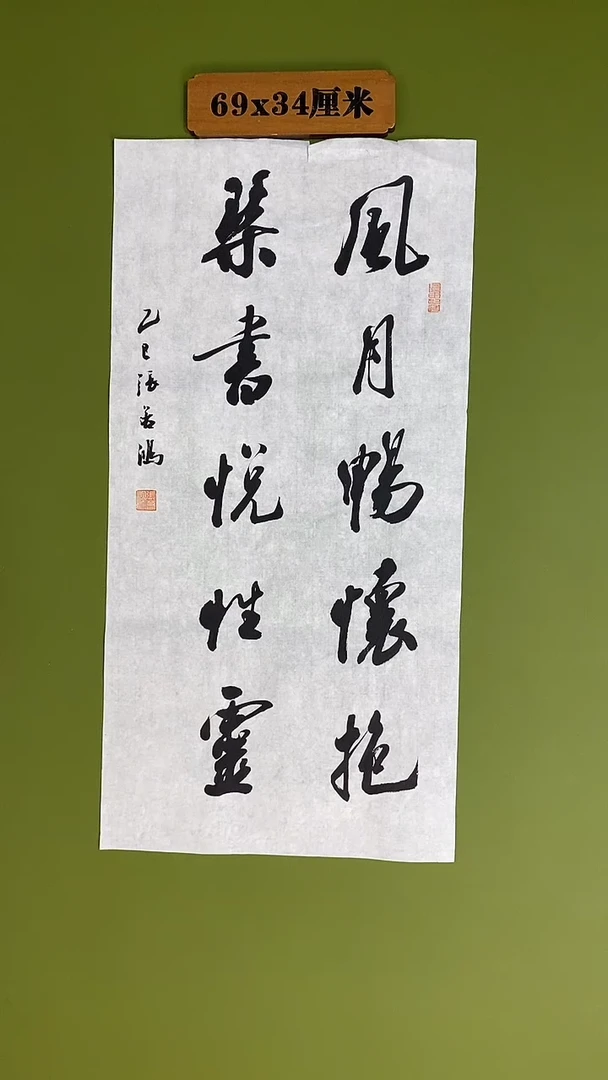 69x34厘米
風月暢懷抱
琴書悦性靈
乙巳張若鴻